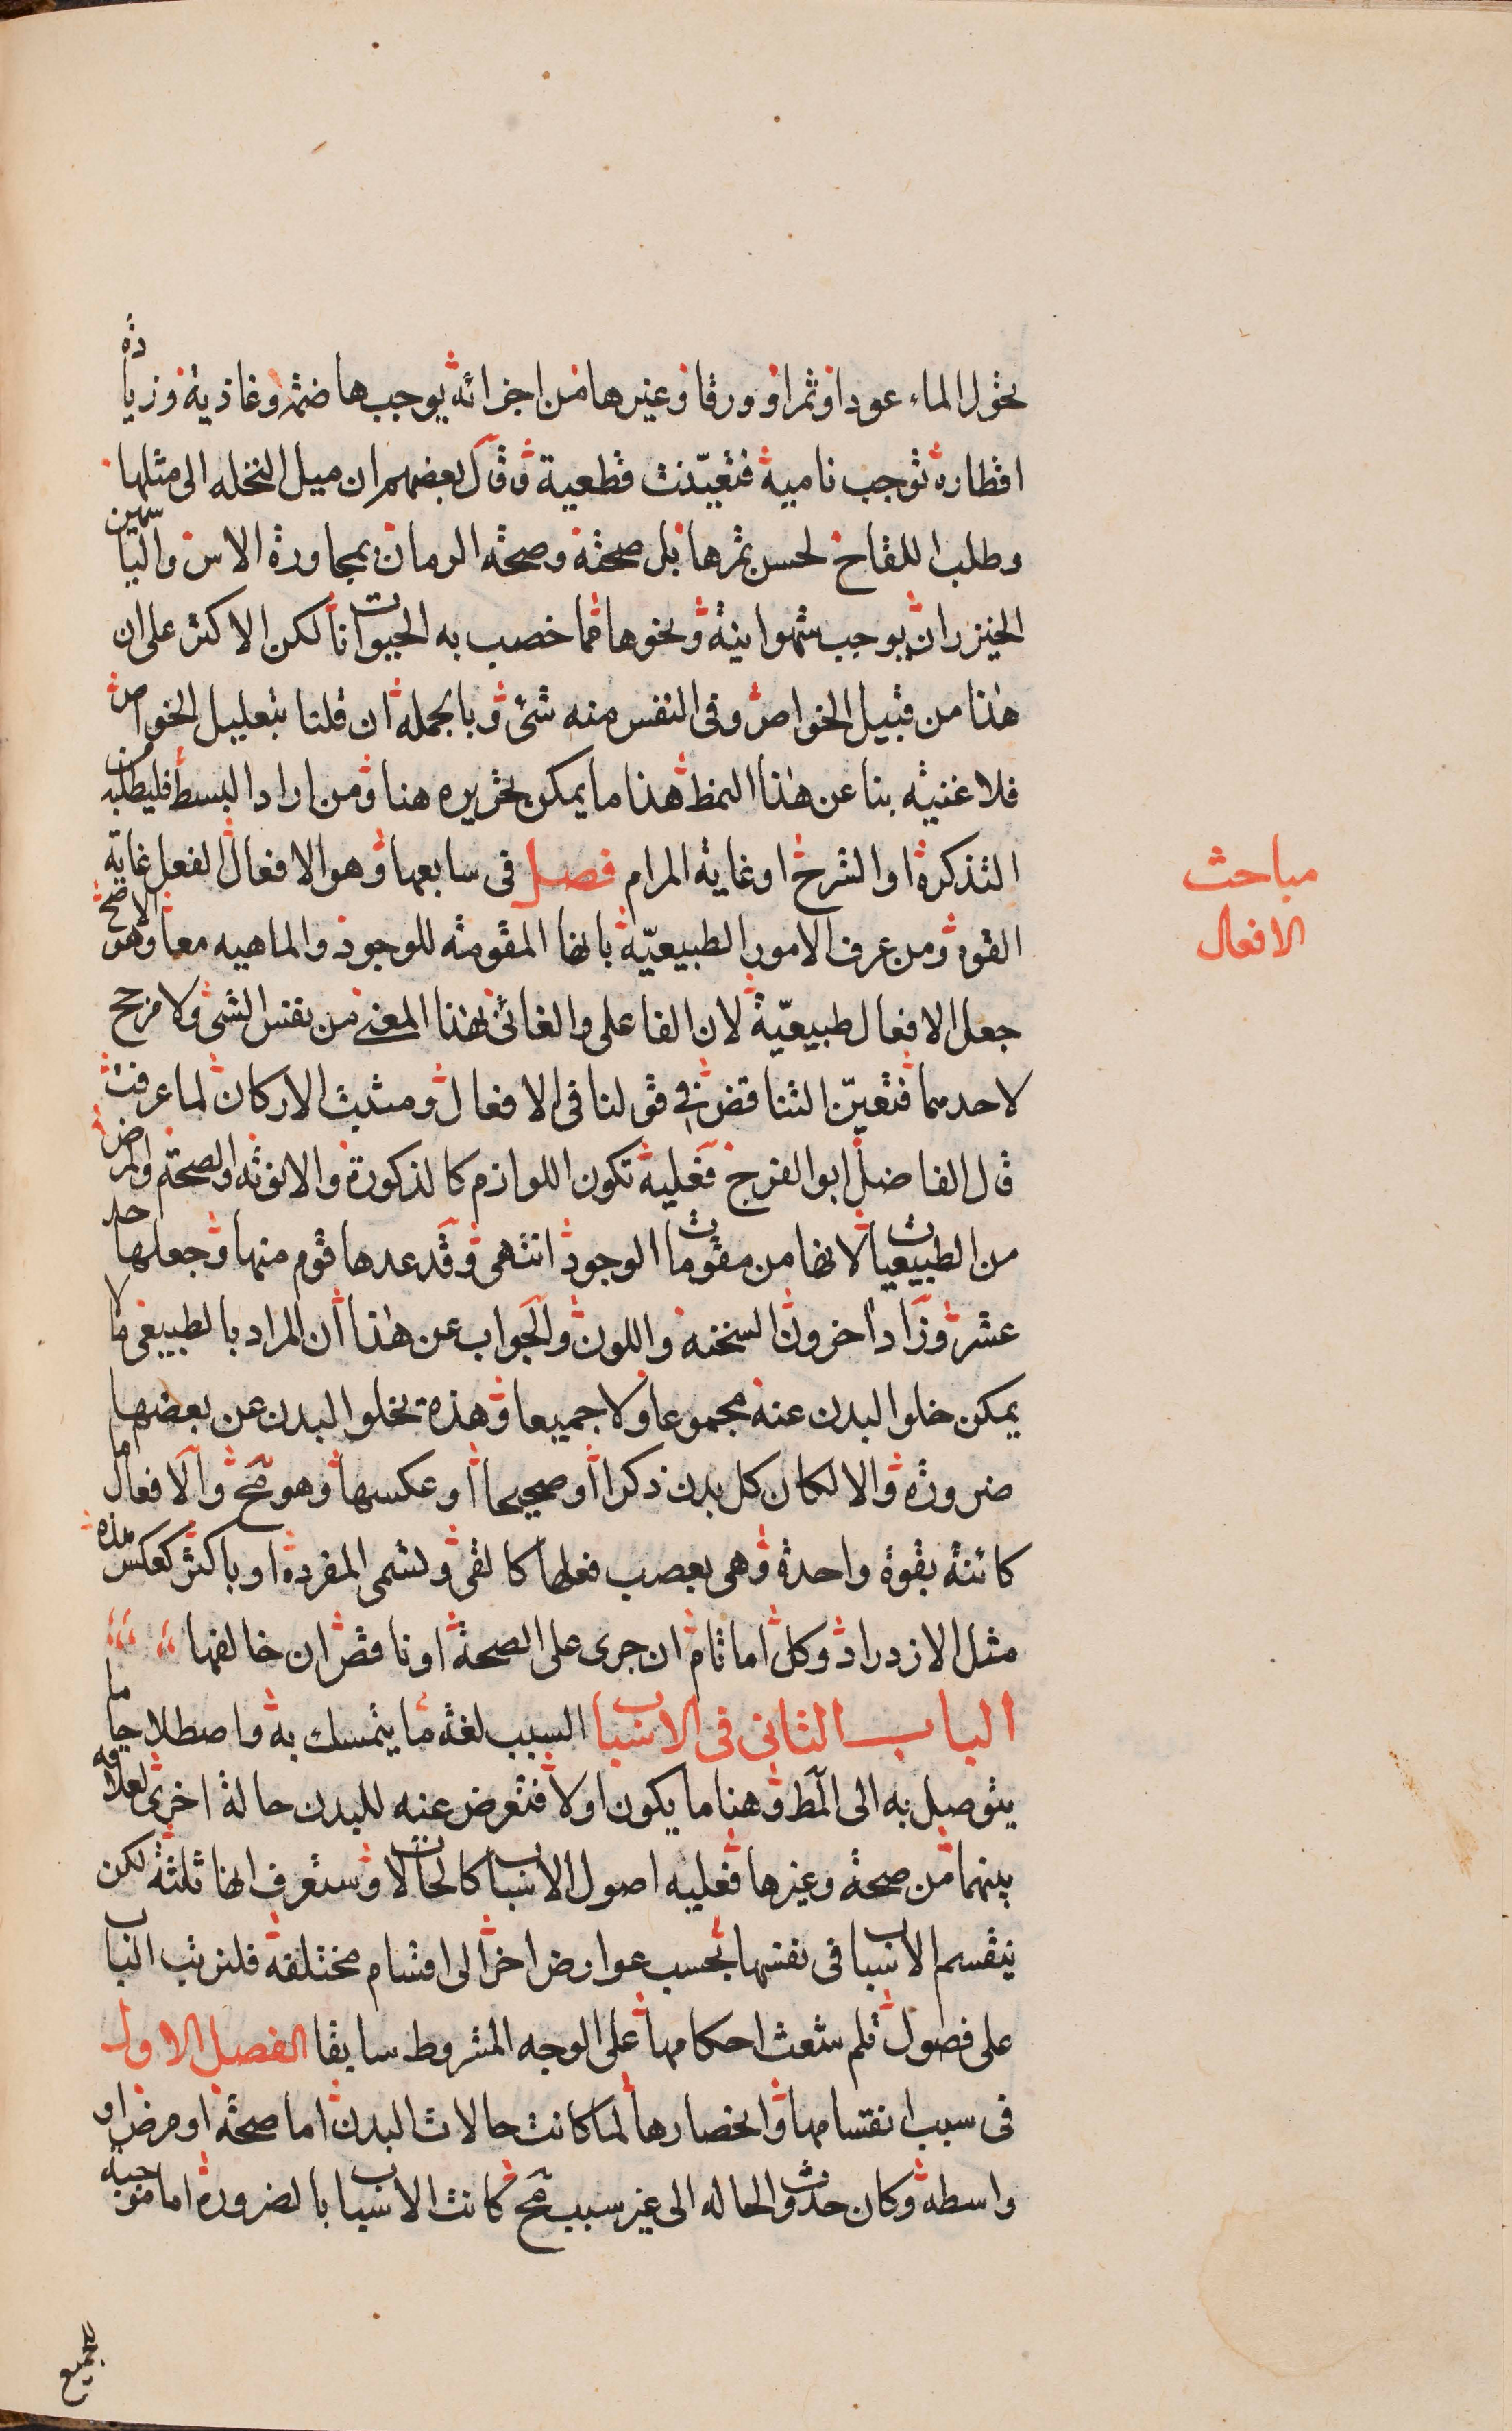 تحول الماء عودا وثمرا وورقا وغيرها من اجزائه يوجب هاضمة وغاذية وزيادة
اقطاره توجب نامية فتعينت قطعية وقال بعضهم ان ميل النخله الى مثلها
وطلب اللقاح لحسن ثمرها بل صحته وصحة الرمان بمجاورة الاس والياسمين
الخيزران يوجب شهوانية ونحوها مما خصت به الحيوانات لكن الاكثر على ان
هذا من قبيل الخواص وفى النفس منه شئ وبالجمله ان قلنا بتعليل الخواص
فلا غنية بنا عن هذا النمط هذا ما يمكن تحريره هنا ومن اراد البسط فليطلبه من
التذكرة او الشرح او غاية المرام فصل فى سابعها وهو الافعال الفعل غاية
مباحث
الافعال
القوة ومن عرف الامور الطبيعيّة بانها المقومة للوجود والماهيه معا وهو الاصح
جعل الافعال طبيعيّة لان الفاعلى والغائى بهذا المعنى من نفس الشئ ولا مرجح
لاحدهما فتعيّن التناقض فى قولنا فى الافعال ومثبت الاركان لما عرفت
قال الفاضل ابو الفرج فعليه تكون اللوازم كالذكورة والانوثه والصحة والمرض
من الطبيعيات لانها من مقومات الوجود انتهى وقد عدها قوم منها وجعلها احد
عشر وزاد اخرون السخنه واللون والجواب عن هذا ان المراد بالطبيعى ما لا
يمكن خلو البدن عنه مجموعا ولا جميعا وهذه تخلو البدن عن بعضها
ضرورة والا لكان كل بدن ذكرا او صحيحا او عكسها وهو مح والافعال اما
كائنة بقوة واحدة وهى بعصب فعلها كالقى وتسمى المفردة او باكثر كعكس هذه
مثل الازدراد وكل اما تام ان جرى على الصحة او ناقص ان خالفها
الباب الثانى فى الاسباب السبب لغة ما يتمسك به واصطلاحا ما
يتوصل به الى المط وهنا ما يكون اولا فتعرض عنه للبدن حالة اخرى لعلاقه
بينهما من صحة وغيرها فعليه اصول الاسباب كالحالات وستعرف انها ثلثة لكن
ينقسم الاسباب فى نفسها بحسب عوارض اخر الى اقسام مختلفة فلنرتب الباب
على فصول تلم شعث احكامها على الوجه المشروط سابقا الفصل الاول
فى سبب انقسامها وانحصارها لما كانت حالات البدن اما صحة او مرض او
واسطه وكان حدوث الحاله الى غير سبب مح كانت الاسباب بالضرورة اما موجبة
للجميع